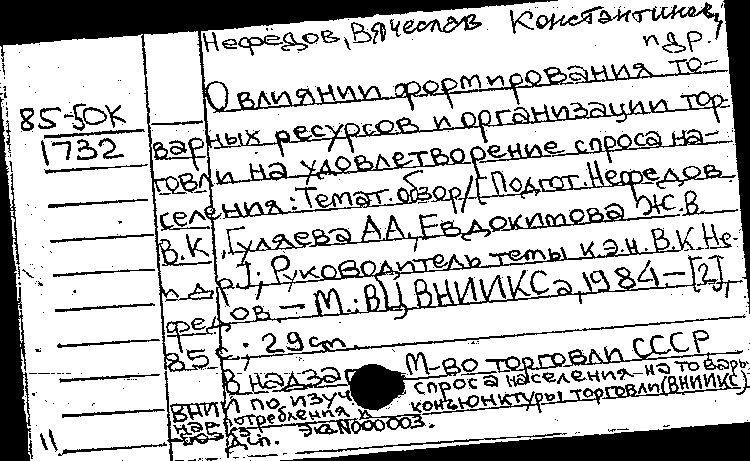 Нефёдов, Вячеслав Константинов,
и др.
О влиянии формирования то-
85-50К
1732
варных ресурсов и организации тор-
говли на удовлетворение спроса на-
селения: Темат. обзор/[Подгот. Нефедов
В.К., Гуляева А.А., Евдокимова Ж.В.
и др.]; Руководитель темы к.э.н. В.К. Не-
федов. — М.: ВЦ ВНИИКСа, 1984. — [2],
85 с.; 29 см.
В надзаг М-во торговли СССР
ВНИИ по изуч спроса населения на товары
нар потребления и конъюнктуры торговли (ВНИИКС)
Д.п. Экз N000003.
11